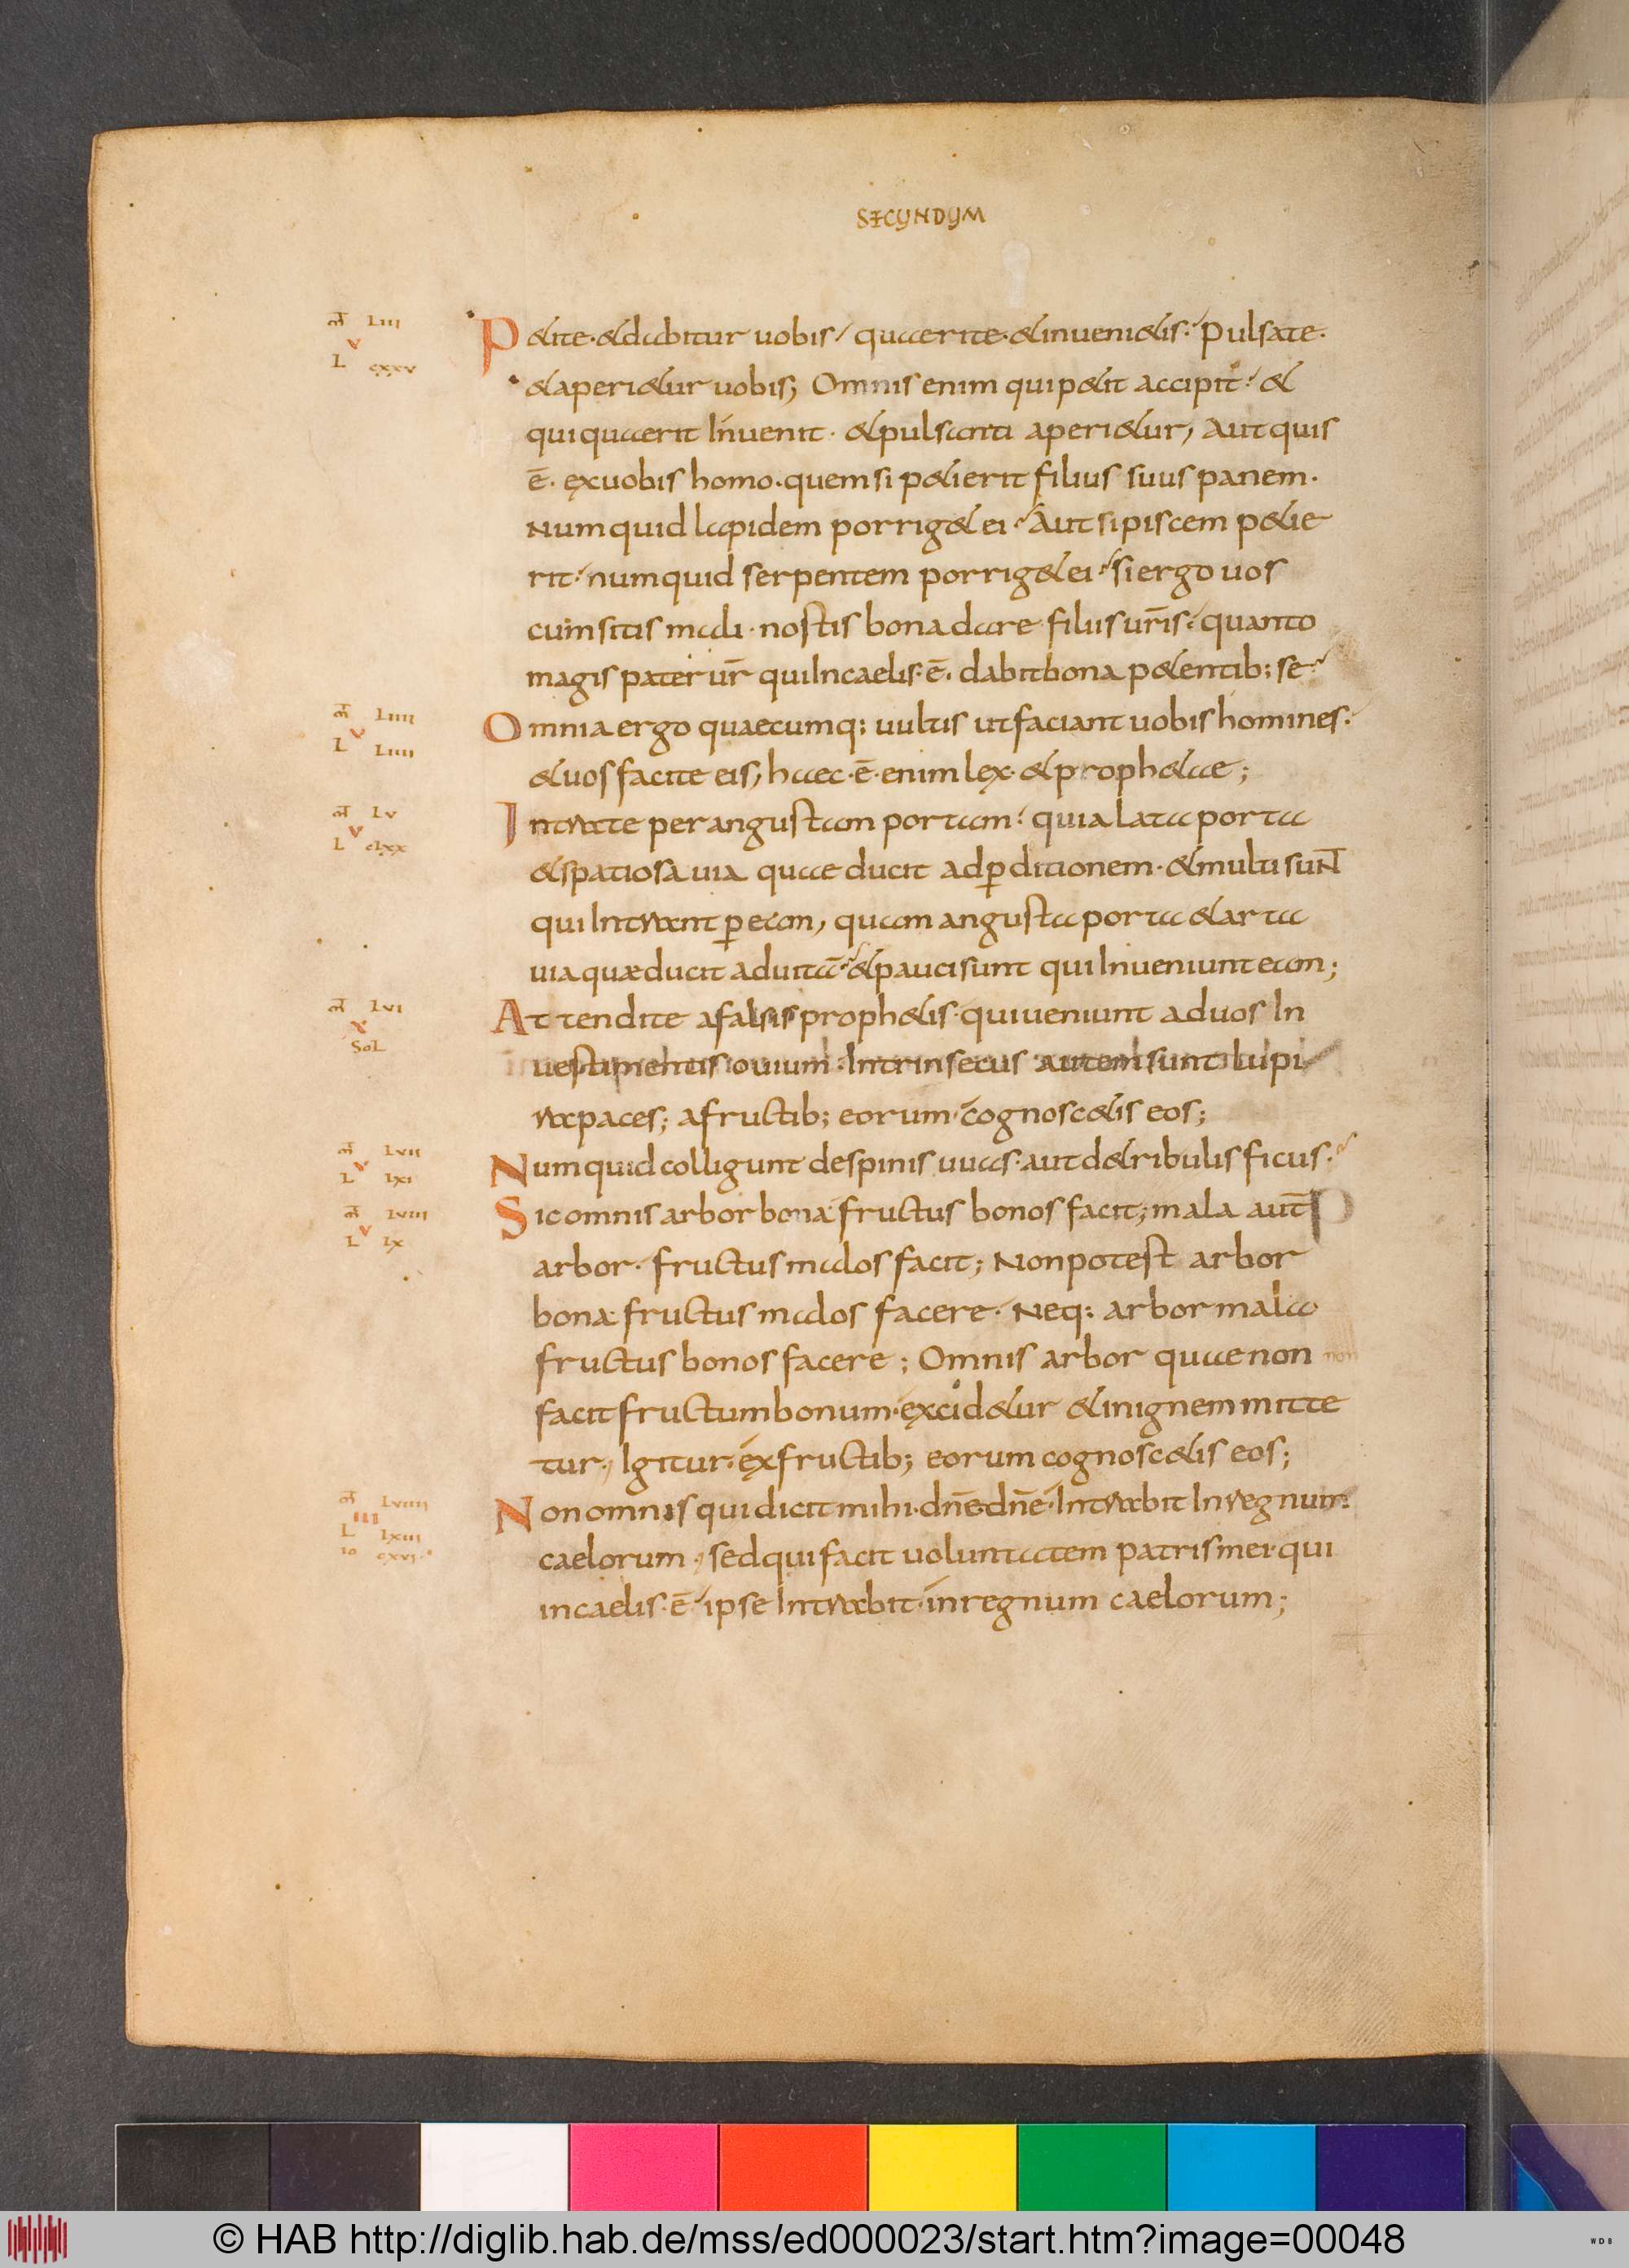 SECUNDUM
mt LIII
L cxxv
Petite · et dabitur uobis / quaerite · et inuenietis · Pulsate ·
et aperietur uobis; Omnis enim qui petit accipit · et
qui quaerit Inuenit · et pulsanti aperietur, Aut quis
ē · ex uobis homo · quem si petierit filius suus panem ·
Numquid lapidem porriget ei · Aut si piscem petie
rit · numquid serpentem porriget ei · si ergo uos
cum sitis mali · nostis bona dare filiis uris̄ · quanto
magis pater ur̄ qui In caelis · ē · dabit bona petentib; se ·
mt LIIII
L LIIII
Omnia ergo quaecumq; uultis ut faciant uobis homines ·
et uos facite eis, haec · ē · enim lex · et prophetae ;
mt Lv
L clxx
Intrate per angustam portam · quia lata porta
et spatiosa uia quae ducit ad ꝑditionem · et multi suNT
qui Intrant ꝑ eam, quam angusta porta et arta
uia quae ducit ad uitā · et pauci sunt qui Inueniunt eam ;
mt Lvi
SoL
Attendite a falsis prophetis · qui ueniunt ad uos In
uestimentis ouium · Intrinsecus autem sunt lupi
rapaces; a fructib; eorum · cognoscetis eos ;
mt Lvii
L lxi
Numquid colligunt de spinis uuas · aut de tribulis ficus ·
mt Lviii
L lx
Sic omnis arbor bona fructus bonos facit; mala aut̄
arbor · fructus malos facit ; Non potest arbor
bona fructus malos facere · Neq; arbor mala
fructus bonos facere ; Omnis arbor quae non
facit fructum bonum · excidetur et in ignem mitte
tur · Igitur · ex fructib; eorum cognoscetis eos ;
mt Lviiii
L lxiii
io cxvi ·
Non omnis qui dicit mihi · dn̄e dn̄e · Intrabit In regnum
caelorum · sed qui facit uoluntatem patris mei · qui
in caelis · ē · ipse Intrabit · in regnum caelorum ;
© HAB http://diglib.hab.de/mss/ed000023/start.htm?image=00048